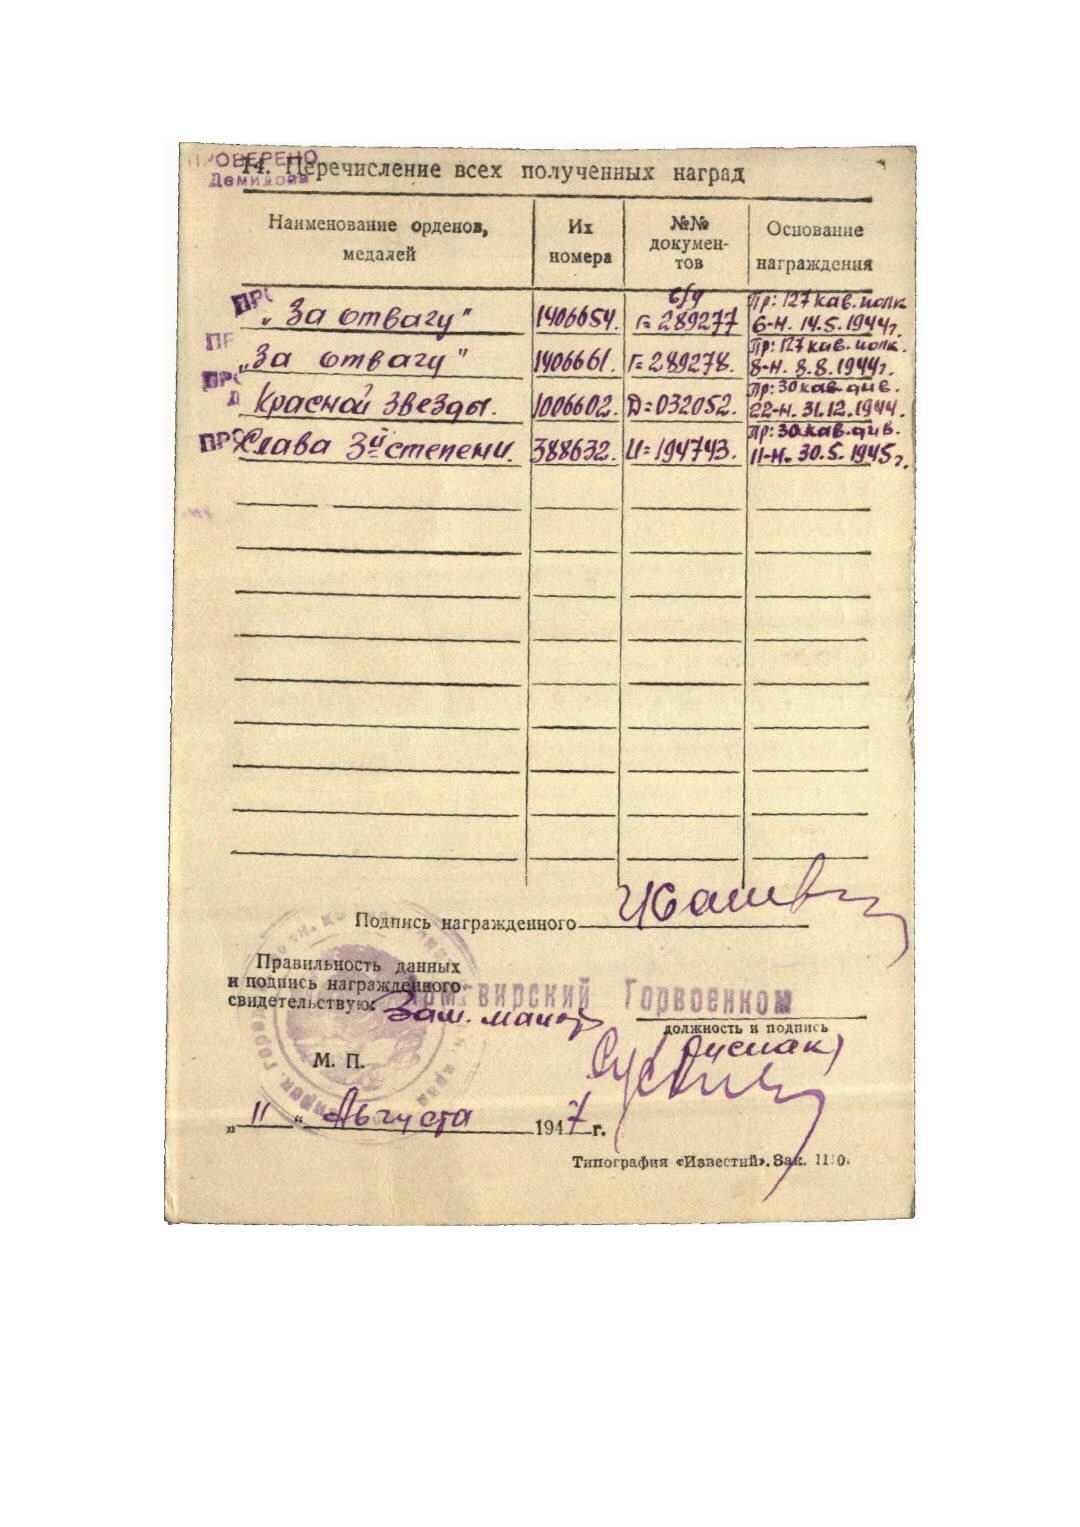 ПРОВЕРЕНО
Демидова
14. Перечисление всех полученных наград
Наименование орденов, медалей
Их номера
№№ документов
Основание награждения
б/у
Пр: 127 кав. полк
„За отвагу" 1406654. Г=289277 6-н. 14.5.1944г.
Пр: 127 кав. полк.
„За отвагу" 1406661. Г=289278. 8-н. 8.8.1944г.
Пр: 30 кав. див.
Красной Звезды. 1006602. Д=032052. 22-н. 31.12.1944.
Пр: 30 кав. див.
Слава 3й степени. 388632. И=194743. 11-н. 30.5.1945г.
Подпись награжденного
Правильность данных
и подпись награжденного
свидетельствую:
Армавирский Горвоенком
Зам. майор
должность и подпись
М. П.
„11" Августа 1947 г.
Типография «Известий». Зак.